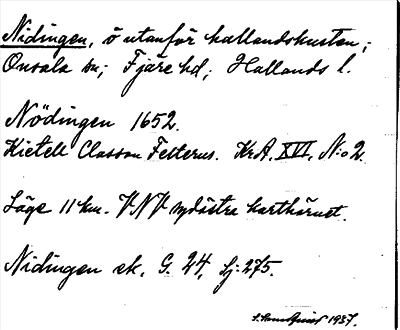 Nidingen, ö utanför hallandskusten;
Onsala sn; Fjäre hd; Hallands l.
Nödingen 1652.
Kietell Classon Fetterus. KrA, XVI, N:o 2.
Läge 11 km. VNV sydöstra karthörnet.
Nidingen ek. G. 24, Sj: 275.
1937.